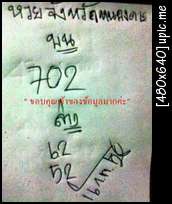 หวยจังหวัด
บน
702
" ขอบคุณเจ้าของข้อมูลมากคะ"
ล่าง
62
52
16 กค 56
[480x640] upic.me